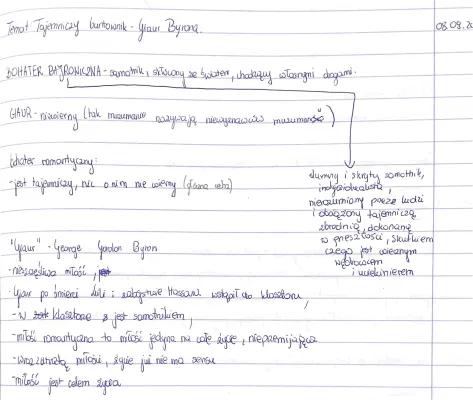 Temat Tajemniczy buntownik - Giaur Byrona.
08.09.20
BOHATER BAJRONICZNA - samotnik, skłócony ze światem, chodzący własnymi drogami.
GIAUR - niewierny (tak muzumanie nazywają niewyznawców muzumanów)
bohater romantyczny:
- jest tajemniczy, nic o nim nie wiemy
dumny i skryty samotnik,
indywidualista,
niezrozumiany przez ludzi
i obciążony tajemniczą
zbrodnią, dokonaną
w przeszłości, skutkiem
czego jest wiecznym
wędrowcem
i uciekinierem
"Giaur" - George Gordon Byron
- nieszczęśliwa miłość,
- Giaur po śmierci Leili i zabójstwie Hassana wstąpił do klasztoru,
- w klasztorze jest samotnikiem,
- miłość romantyczna to miłość jedyna na całe życie, nieprzemijająca
- wraz z utratą miłości, życie już nie ma sensu
- miłość jest celem życia